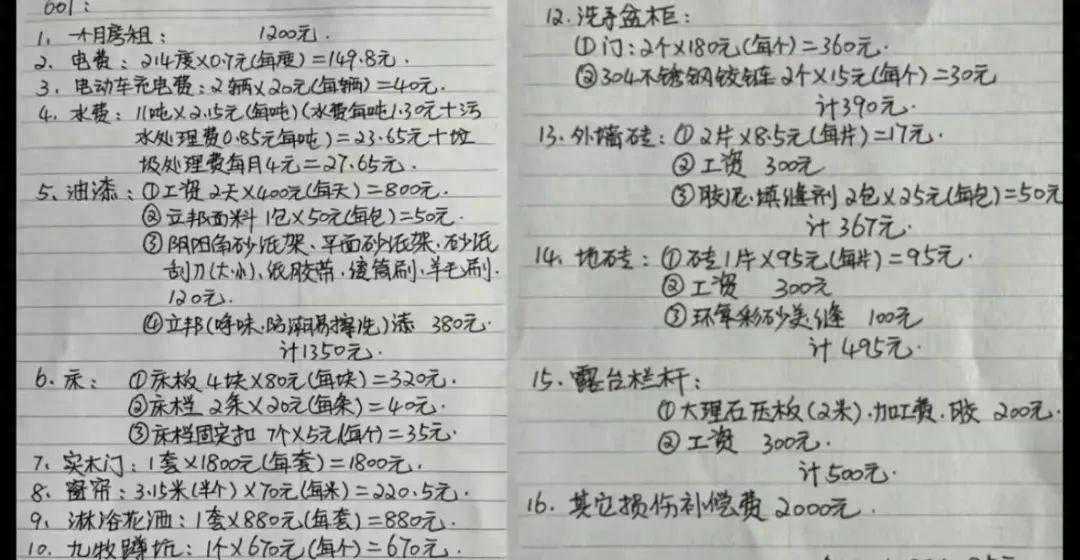 601:
1、一个月房租: 1200元.
2、电费: 214度×0.7元(每度)=149.8元.
3、电动车充电费: 2辆×20元(每辆)=40元.
4、水费: 11吨×2.15元(每吨)(水费每吨1.30元+污
水处理费0.85元每吨)=23.65元+垃
圾处理费每月4元=27.65元.
5、油漆: ①工资 2天×400元(每天)=800元.
②立邦面料 1包×50元(每包)=50元.
③阴阳角砂纸架、平面砂纸架、砂纸
刮刀(大小)、纸胶带、滚筒刷、羊毛刷.
120元.
④立邦(净味.防潮易擦洗)漆 380元.
计1350元.
6、床: ①床板 4块×80元(每块)=320元.
②床栏 2条×20元(每条)=40元.
③床栏固定扣 7个×5元(每个)=35元.
7、实木门: 1套×1800元(每套)=1800元.
8、窗帘: 3.15米(半个)×70元(每米)=220.5元.
9、淋浴花洒: 1套×880元(每套)=880元.
10、九牧蹲坑: 1个×670元(每个)=670元.
12.洗手盆柜:
①门: 2个×180元(每个)=360元.
②304不锈钢铰链 2个×15元(每个)=30元
计390元.
13.外墙砖: ①2片×8.5元(每片)=17元.
②工资 300元
③胶泥.填缝剂 2包×25元(每包)=50元
计367元.
14.地砖: ①砖1片×95元(每片)=95元.
②工资 300元
③环氧彩砂美缝 100元
计495元.
15.露台栏杆:
①大理石压板(2米).加工费.胶 200元.
②工资 300元.
计500元.
16.其它损伤补偿费 2000元.